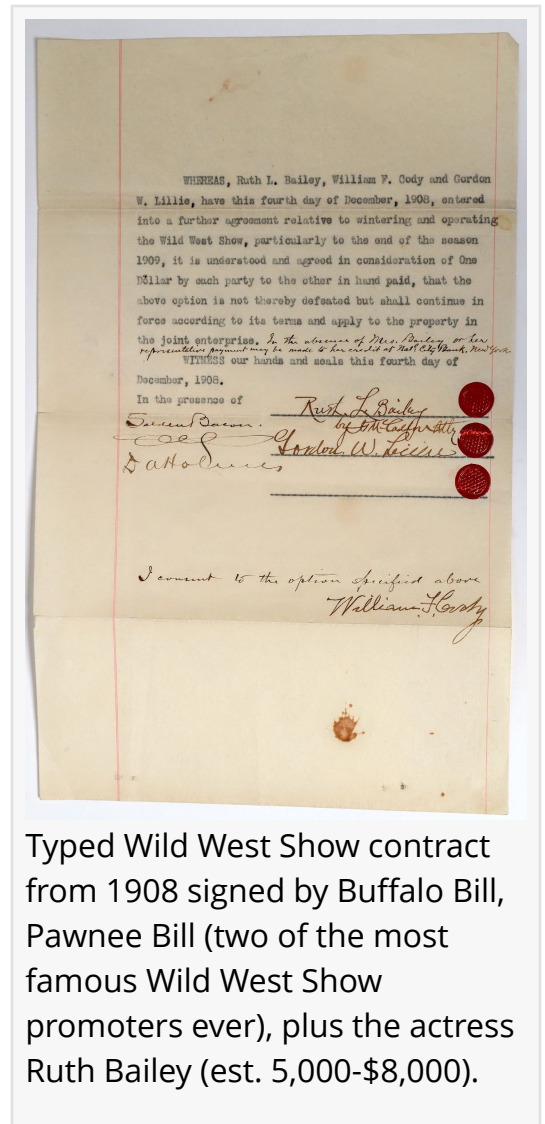 WHEREAS, Ruth L. Bailey, William F. Cody and Gordon
W. Lillie, have this fourth day of December, 1908, entered
into a further agreement relative to wintering and operating
the Wild West Show, particularly to the end of the season
1909, it is understood and agreed in consideration of One
Dollar by each party to the other in hand paid, that the
above option is not thereby defeated but shall continue in
force according to its terms and apply to the property in
the joint enterprise. In the absence of Mrs. Bailey, or her
representative payment may be made to her credit at Natl City Bank, New York
WITNESS our hands and seals this fourth day of
December, 1908.
In the presence of
Ruth L. Bailey
by Atty
Gordon W. Lillie
I consent to the option specified above
William F. Cody
Typed Wild West Show contract
from 1908 signed by Buffalo Bill,
Pawnee Bill (two of the most
famous Wild West Show
promoters ever), plus the actress
Ruth Bailey (est. 5,000-$8,000).